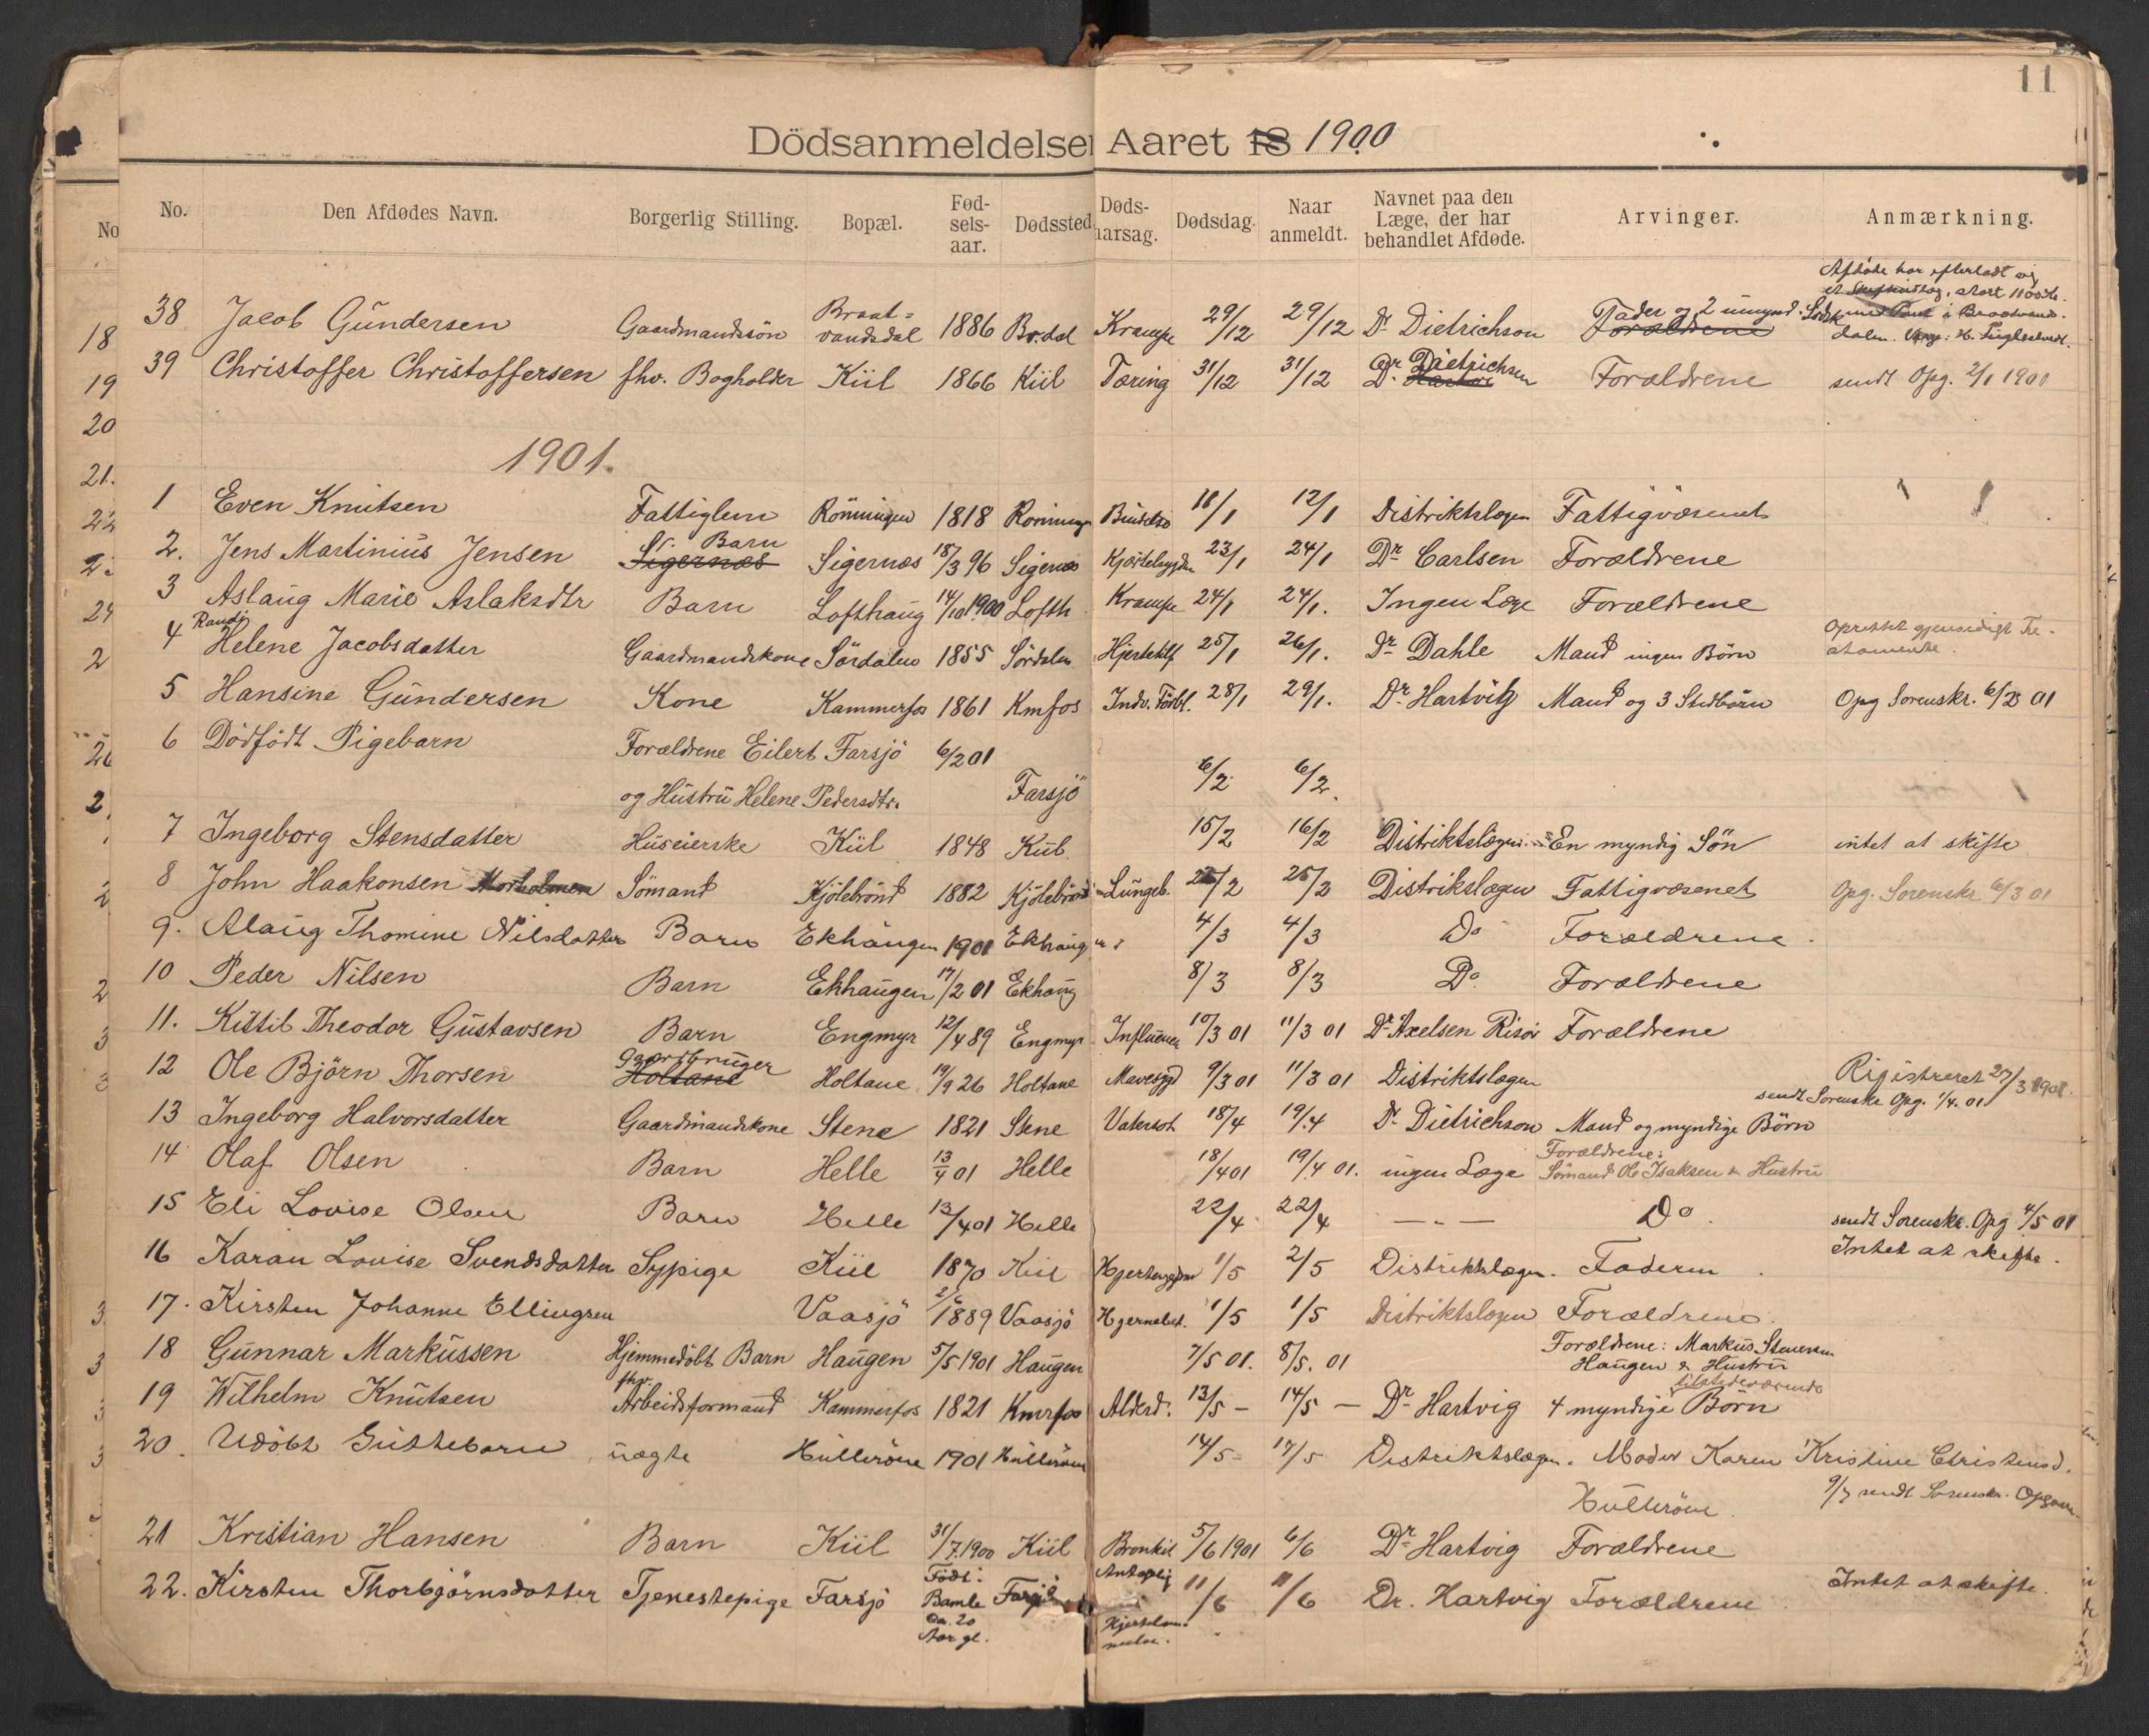 11
Dödsanmeldelser Aaret 18 1900
No. Den Afdødes Navn. Borgerlig Stilling. Bopæl. Fød-sels-aar. Dødssted. Døds-aarsag. Dødsdag. Naar anmeldt. Navnet paa den Læge, der har behandlet Afdøde. Arvinger. Anmærkning.
Afdøde har efterladt sig
38 Jacob Gundersen Gaardmandssön Braat=vandsdal 1886 Br.dal Krampe 29/12 29/12 Dr Dietrichson Fader og 2 umynd. Södsk Forældrene
39 Christoffer Christoffersen fhv. Bogholder Kiil 1866 Kiil Tæring 31/12 31/12 Dr Dietrichsen Forældrene sendt Opg. 2/1 1901
1901.
1 Even Knutsen Fattiglem Rönningen 1818 Rönningen 11/1 12/1 Distriktslægen Fattigvæsenet
2. Jens Martinius Jensen Barn Sigernæs Sigernæs 18/3 96 Sigernæs 23/1 24/1 Dr Carlsen Forældrene
3 Aslaug Marie Aslaksdtr Barn Lofthaug 14/10 1900 Lofth Krampe 24/1 24/1. Ingen Læge Forældrene
4 Randi Helene Jacobsdatter Gaardmandskone Sördalen 1855 Sördalen 25/1 26/1. Dr Dahle Mand ingen Börn Oprettet gjensidigt Te-
5 Hansine Gundersen Kone Kammerfos 1861 Kmfos Indv. Forbl. 28/1 29/1. Dr Hartvig Mand og 3 Stedbörn Opg Sorenskr. 6/2 01
6 Dödfödt Pigebarn Forældrene Eilert Farsjö 6/2 01
og Hustru Helene Pedersdtr. Farsjö 6/2 6/2.
7 Ingeborg Stensdatter Huseierske Kiil 1848 Kiil 15/2 16/2 Distriktslægen En myndig Sön intet at skifte
8 John Haakonsen Sömand Kjölebrönd 1882 Kjölebrönd Lungeb. 25/2 25/2 Distrikslægen Fattigvæsenet Opg. Sorenskr 6/3 01
9. Alaug Thomine Nilsdatter Barn Ekhaugen 1901 Ekhaugen 4/3 4/3 Do Forældrene.
10 Peder Nilsen Barn Ekhaugen 17/2 01 Ekhaug 8/3 8/3 Do Forældrene
11. Kittil Theodor Gustavsen Barn Engmyr 12/4 89 Engmyr Influenza 10/3 01 11/3 01 Dr Axelsen Risör Forældrene
12 Ole Björn Thorsen Gaardbruger Holtane Holtane 19/9 26 Holtane Mavesygd 9/3 01 11/3 01 Distriktslægen Registreret 27/3 1901.
sendt Sorenskr Opg. 1/4. 01
13 Ingeborg Halvorsdatter Gaardmandskone Stene 1821 Stene Vatersot 18/4 19/4 Dr Dietrichson Mand og myndige Börn
14 Olaf Olsen Barn Helle 13/4 01 Helle 18/4 01 19/4 01. ingen Læge Forældrene: Sömand Ole Isaksen & Hustru
15 Eli Lovise Olsen Barn Helle 13/4 01 Helle 22/4 22/4 — „ — Do. sendt Sorenskr. Opg 4/5 01
16 Karan Lovise Svendsdatter Sypige Kiil 1870 Kiil Hjertesygdom 1/5 2/5 Distriktslægen. Faderen. Intet at skifte.
17. Kirsten Johanne Ellingsen Vaasjö 2/6 1889 Vaasjö 1/5 1/5 Distriktslægen Forældrene.
18 Gunnar Markussen Hjemmedöbt Barn Haugen 5/5 1901 Haugen 7/5 01. 8/5. 01 Forældrene: Markus Stenersen Haugen & Hustru
19 Wilhelm Knutsen fhv. Arbeidsformand Kammerfos 1821 Kmrfos Alderd. 13/5 – 14/5 – Dr Hartvig 4 myndige tilstedeværende Börn
20. Udöbt Guttebarn uægte Hulleröne 1901 Hulleröne 14/5 – 17/5 Distriktslægen. Moder Karen Kristine Christensd.
Hulleröne. 9/7 sendt Sorenskr. Opgave
21 Kristian Hansen Barn Kiil 31/7.1900 Kiil Bronkit 5/6 1901 6/6 Dr Hartvig Forældrene
22. Kirsten Thorbjörnsdatter Tjenestepige Farsjö Födt: Bamle ca. 20 Aar gl. Farsjö Antagelig 11/6 11/6 Dr. Hartvig Forældrene. Intet at skifte.